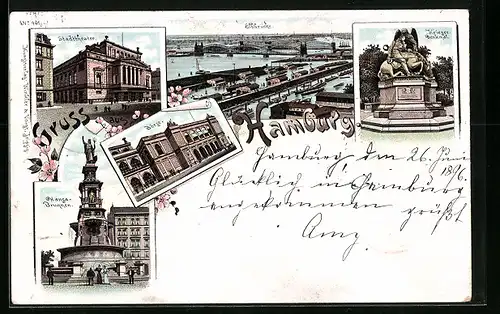 Stadttheater.
Elbbrücke
Krieger-
Denkmal.
Gruss
aus
Börse.
Hamburg.
Hansa-
Brunnen.
Hamburg den 26. Juni
1896.
Glücklich in Hamburg
angekommen grüßt